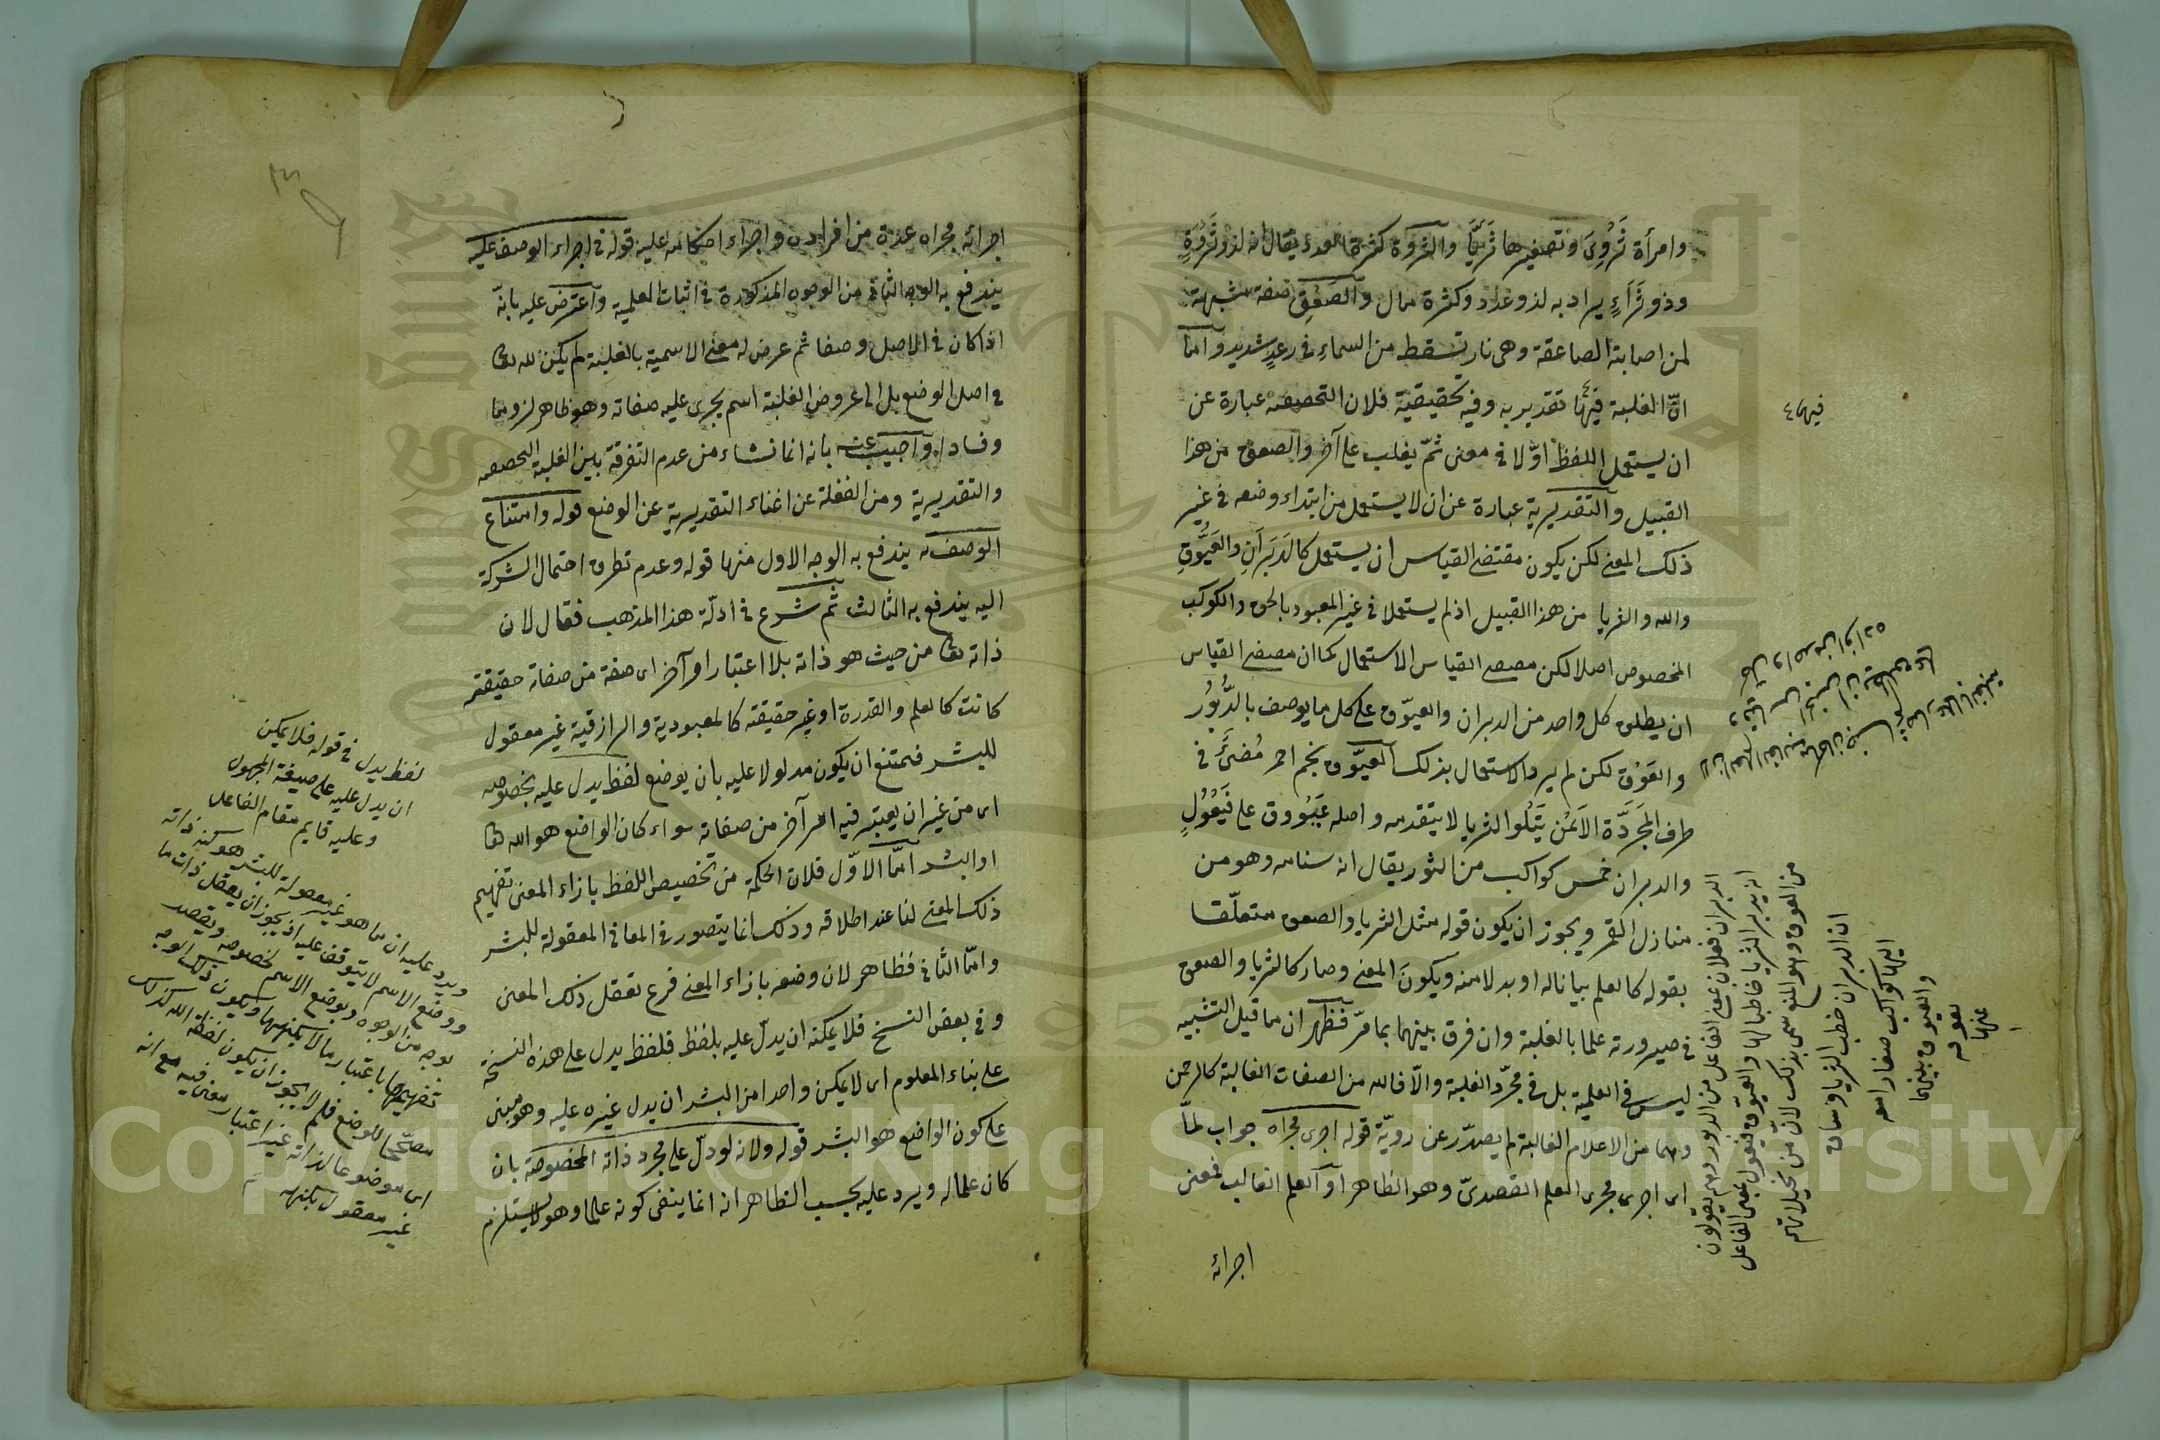 وامرأة ثَرْوى وتصغيرها ثُرَيَّا والثروة كثرة العدد يقال انه لذو ثَرْوَةٍ
وذو ثَرَاءٍ يراد به لذو عدد وكثرة مال والصَعِق صفة مشبهة
لمن اصابته الصاعقة وهى نار تسقط من السماء فى رعدٍ شديد وامّا
انّ الغلبة فيهٔا تقديرية وفيه تحقيقيّة فلان التحقيقية عبارة عن
ان يستعمل اللفظ اوّلا فى معنى ثمّ يغلب على آخر والصعق من هذا
القبيل والتقديرية عبارة عن ان لا يستعمل من ابتداء وضعه فى غير
ذلك المعنى لكن يكون مقتضى القياس ان يستعمل كالدَبَرَانِ والعَيُّوقِ
والله والثريا من هذا القبيل اذ لم يستعملا فى غير المعبود بالحق والكوكب
المخصوص اصلا لكن مقتضى القياس الاستعمال كما ان مقتضى القياس
ان يطلق كل واحد من الدبران والعيّوق على كل ما يوصف بالدُّبُورِ
والعَوْق لكن لم يرد الاستعمال بذلك العيّوق نجم احمر مُضئ فى
طرف المَجَرَّة الاَيْمَنِ يَتْلُو الثريا لا يتقدمه واصله عَيْوُوق على فَيْعُولٍ
والدبران خمس كواكب من الثور يقال انه سنامه وهو من
منازل القمر ويجوز ان يكون قوله مثل الثريا والصعق متعلّقا
بقوله كالعلم بيانا له او بدلا منه ويكون المعنى وصار كالثريا والصعق
فى صيرورته علما بالغلبة وان فرق بينهما بما مرّ فظهر ان ما قيل التشبيه
ليس فى العلمية بل فى مجرّد الغلبة والّا فالله من الصفات الغالبة كالرحمن
وهما من الاعلام الغالبة لم يصدّر عن رويّة قوله اجرى مجراه جواب لمّا
اى اجرى مجرى العلم القصدىّ وهو الظاهر او العلم الغالب فمعنى
اجرائه
فيها ٤
الدبران فعلان بمعنى الفاعل من الدبور وهم يقولون
انه يدبر الثريا خاطبا لها والعيّوق فيعول بمعنى الفاعل
من العوق وهو المنع سمى بذلك لانّ من تخيلاتهم
ان الدبران خطب الثريا وساق
اليها كواكب صغارا معه
والعيوق بينهما
يعوقه
عنها
اجرائه مجراه عدّه من افراده واجراء احكامه عليه قوله فى اجراء الوصف عليه
يندفع به الوجه الثانى من الوجوه المذكورة فى اثبات العلمية وآعترض عليه بانّه
اذا كان فى الاصل وصفا ثم عرض له معنى الاسمية بالغلبة لم يكن لله تعا
فى اصل الوضع بل الى عروض الغلبة اسم يجرى عليه صفاته وهو ظاهر لزوما
وفسادا وآجيب عنه بانه انما نشاء من عدم التفرقة بين الغلبة التحقيقية
والتقديرية ومن الغفلة عن اغناء التقديرية عن الوضع قوله وامتناع
الوصف به يندفع به الوجه الاول منها قوله وعدم تطرق احتمال الشركة
اليه يندفع به الثالث ثم شرع فى ادلّة هذا المذهب فقال لان
ذاته تعا من حيث هو ذاته بلا اعتبار امر آخر اى صفة من صفاته حقيقية
كانت كالعلم والقدرة او غير حقيقته كالمعبودية والرازقية غير معقول
للبشر فيمتنع ان يكون مدلولا عليه بان يوضع لفظ يدل عليه بخصوصه
اى من غير ان يعتبر فيه امر آخر من صفاته سواء كان الواضع هو الله تعا
او البشر امّا الاوّل فلان الحكمة من تخصيص اللفظ بازاء المعنى تفهيم
ذلك المعنى لنا عند اطلاقه وذلك انما يتصور فى المعانى المعقولة للبشر
وامّا الثانى فظاهر لان وضعه بازاء المعنى فرع تعقل ذلك المعنى
وفى بعض النسخ فلا يمكنه ان يدلّ عليه بلفظ فلفظ يدل على هذه النسخة
على بناء المعلوم اى لا يمكن واحدا من البشر ان يدل غيره عليه وهو مبنى
على كون الواضع هو البشر قوله ولانه لو دلّ على مجرد ذاته المخصوصة بان
كان علما له ويرد عليه بحسب الظاهر انه انما ينفى كونه علما وهو لا يستلزم
لفظ يدل فى قوله فلا يمكن
ان يدل عليه على صيغة المجهول
وعليه قايم مقام الفاعل
ويرد عليه ان ما هو غير معقولة للبشر هو كنه ذاته
ووضع الاسم لا يتوقف عليه اذ يجوز ان يعقل ذات ما
بوجه من الوجوه ويوضع الاسم لخصوصه ويقصد
تفهيمها باعتبار ما لا بكنهها ويكون ذلك الوجه
مصحّحا للوضع فلم لا يجوز ان يكون لفظة الله كذلك
اى موضوعا لذاته غير اعتبار معنى فيه مع انه
غير معقول بكنهه